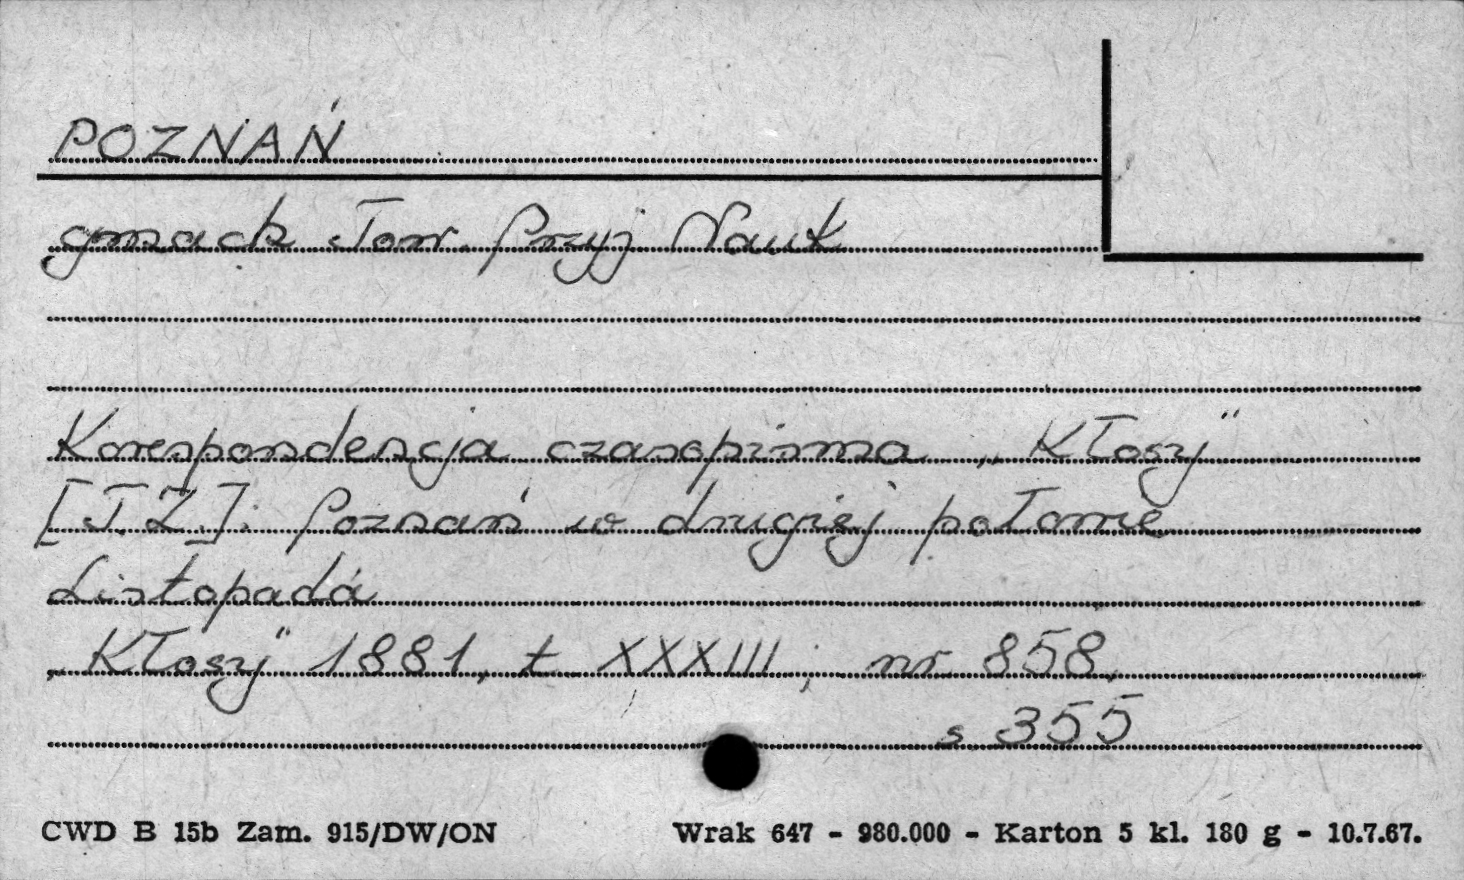 POZNAŃ
gmach Tow. Przyj Nauk
Korespondencja czasopisma „Kłosy"
[J.Z.]: Poznań w drugiej połowie
Listopada
„Kłosy" 1881, t XXXIII; nr 858,
s 355
CWD B 15b Zam. 915/DW/ON Wrak 647 - 980.000 - Karton 5 kl. 180 g - 10.7.67.